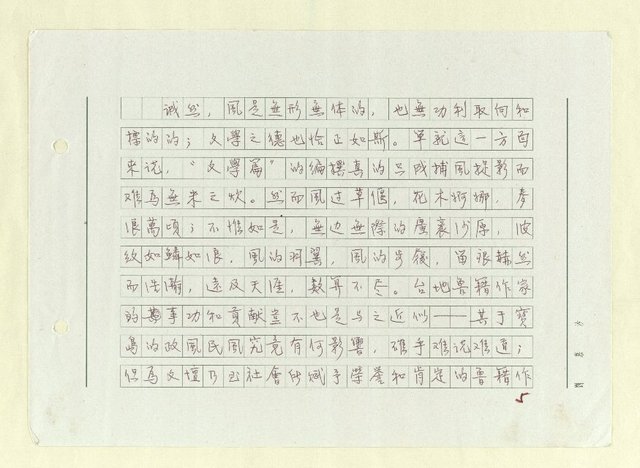 誠然，風是無形無体的，也無功利取向和
標的的；文學之德也恰正如斯。單就這一方面
來説，“文學篇”的編撰真的只成捕風捉影而
难為無米之炊。然而風过草偃，花木婀娜，麥
浪萬頃；不惟如是，無边無際的廣袤沙原，波
紋如鱗如浪，風的羽翼，風的步履，留痕赫然
而浩瀚，遠及天涯，数算不尽。台地魯籍作家
的事功和貢献豈不也是与之近似——其于寶
島的政風民風究竟有何影響，確乎难说难道；
但為文壇乃至社會所賦予榮譽和肯定的魯籍作
5